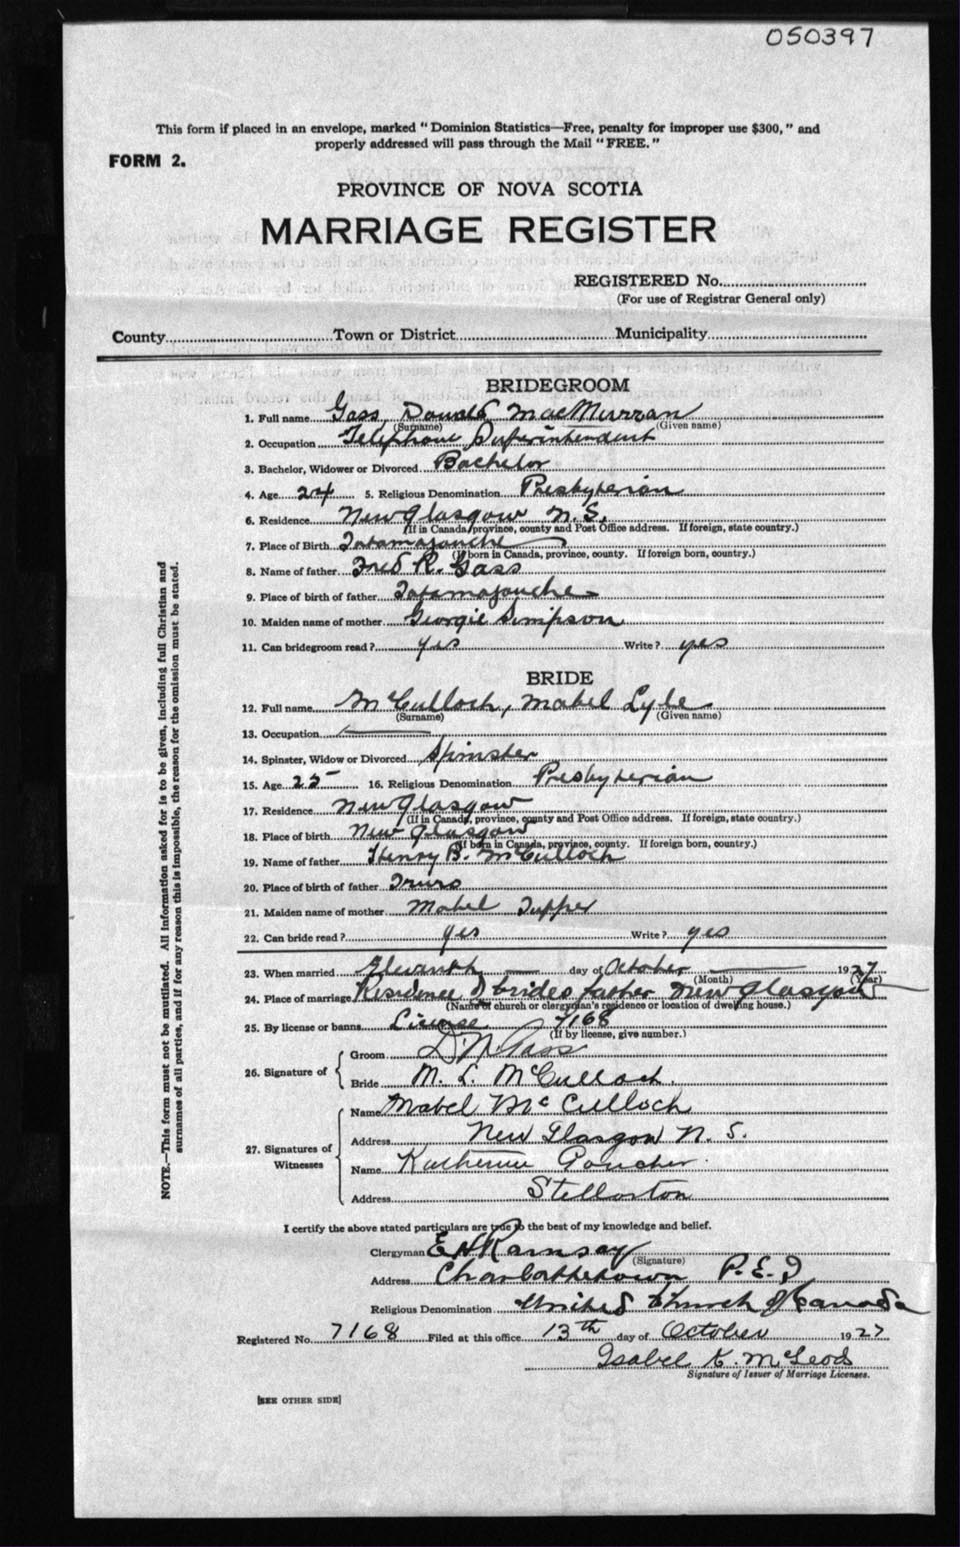 050397
This form if placed in an envelope, marked "Dominion Statistics—Free, penalty for improper use $300," and
properly addressed will pass through the Mail "FREE."
FORM 2.
PROVINCE OF NOVA SCOTIA
MARRIAGE REGISTER
REGISTERED No.
(For use of Registrar General only)
County Town or District Municipality
BRIDEGROOM
1. Full name Gass, Donald MacMurran
(Surname) (Given name)
2. Occupation Telephone Superintendent
3. Bachelor, Widower or Divorced Bachelor
4. Age 24 5. Religious Denomination Presbyterian
6. Residence New Glasgow N.S.
(If in Canada, province, county and Post Office address. If foreign, state country.)
7. Place of Birth Tatamagouche
(If born in Canada, province, county. If foreign born, country.)
8. Name of father Fred R. Gass
9. Place of birth of father Tatamagouche
10. Maiden name of mother Georgie Simpson
11. Can bridegroom read? yes Write? yes
BRIDE
12. Full name McCulloch, Mabel Lyde
(Surname) (Given name)
13. Occupation
14. Spinster, Widow or Divorced Spinster
15. Age 25 16. Religious Denomination Presbyterian
17. Residence New Glasgow
(If in Canada, province, county and Post Office address. If foreign, state country.)
18. Place of birth New Glasgow
(If born in Canada, province, county. If foreign born, country.)
19. Name of father Henry B. McCulloch
20. Place of birth of father Truro
21. Maiden name of mother Mabel Tupper
22. Can bride read? yes Write? yes
23. When married Eleventh day of October 1927
(Month) (Year)
24. Place of marriage Residence of brides father New Glasgow
(Name of church or clergyman's residence or location of dwelling house.)
25. By license or banns License 7168
(If by license, give number.)
26. Signature of
Groom Gass
Bride M. L. McCulloch.
27. Signatures of Witnesses
Name Mabel McCulloch
Address New Glasgow N. S.
Name Katherine
Address Stellarton
I certify the above stated particulars are true to the best of my knowledge and belief.
Clergyman E H Ramsay
(Signature)
Address Charlottetown P.E.I
Religious Denomination United Church of Canada
Registered No. 7168 Filed at this office 13th day of October 1927
Isabel K. McLeod
Signature of Issuer of Marriage Licenses.
[SEE OTHER SIDE]
NOTE.—This form must not be mutilated. All information asked for is to be given, including full Christian and
surnames of all parties, and if for any reason this is impossible, the reason for the omission must be stated.